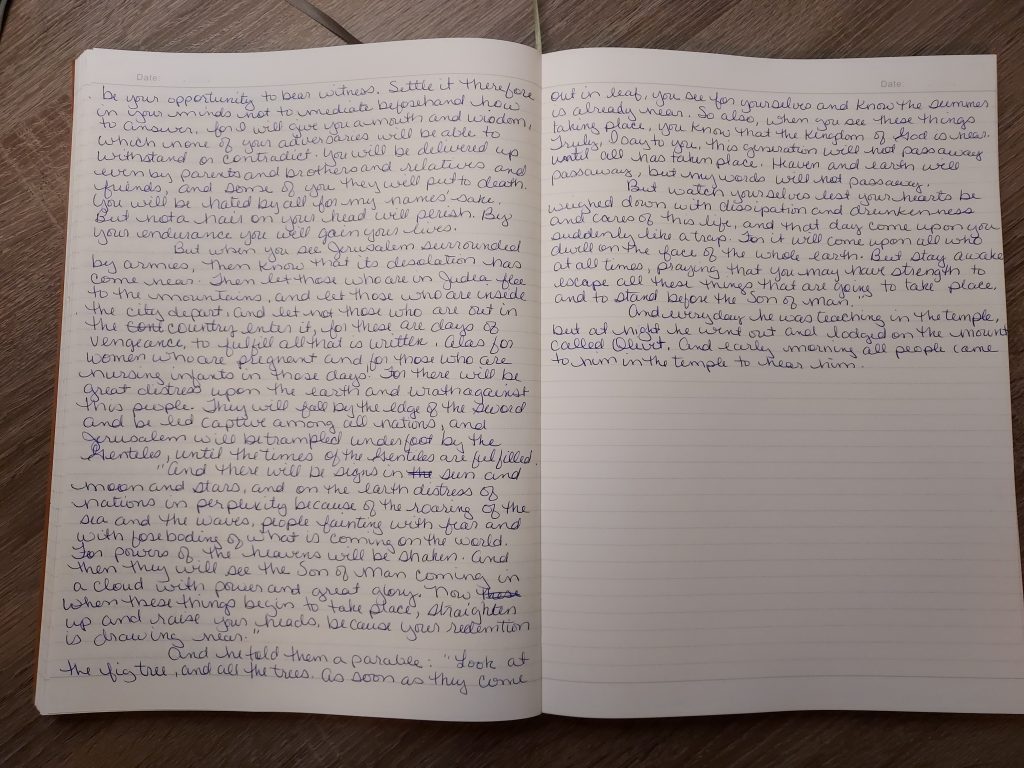 Date:
be your opportunity to bear witness. Settle it therefore
in your minds not to mediate beforehand how
to answer, for I will give you a mouth and wisdom,
which none of your adversaries will be able to
withstand or contradict. You will be delivered up
even by parents and brothers and relatives and
friends, and some of you they will put to death.
You will be hated by all for my names' sake.
But not a hair on your head will perish. By
your endurance you will gain your lives.
But when you see Jerusalem surrounded
by armies, then know that its desolation has
come near. Then let those who are in Judea flee
to the mountains, and let those who are inside
the city depart, and let not those who are out in
the country enter it, for these are days of
vengeance, to fulfill all that is written. Alas for
women who are pregnant and for those who are
nursing infants in those days! For there will be
great distress upon the earth and wrath against
this people. They will fall by the edge of the sword
and be led captive among all nations, and
Jerusalem will be trampled underfoot by the
Gentiles, until the times of the Gentiles are fulfilled.
"And there will be signs in the sun and
moon and stars, and on the earth distress of
nations in perplexity because of the roaring of the
sea and the waves, people fainting with fear and
with foreboding of what is coming on the world.
For powers of the heavens will be shaken. And
then they will see the Son of Man coming in
a cloud with power and great glory. Now these
when these things begin to take place, straighten
up and raise your heads, because your redemtion
is drawing near."
And he told them a parable: "Look at
the fig tree, and all the trees. As soon as they come
Date:
out in leaf, you see for yourselves and know the summer
is already near. So also, when you see these things
taking place, you know that the kingdom of God is near.
Truly, I say to you, this generation will not pass away
until all has taken place. Heaven and earth will
pass away, but my words will not pass away.
But watch yourselves lest your hearts be
weighed down with dissipation and drunkenness
and cares of this life, and that day come upon you
suddenly like a trap. For it will come upon all who
dwell on the face of the whole earth. But stay awake
at all times, praying that you may have strength to
escape all these things that are going to take place,
and to stand before the Son of Man."
And everyday he was teaching in the temple,
but at night he went out and lodged on the mount
called Olivet. And early morning all people came
to him in the temple to hear him.